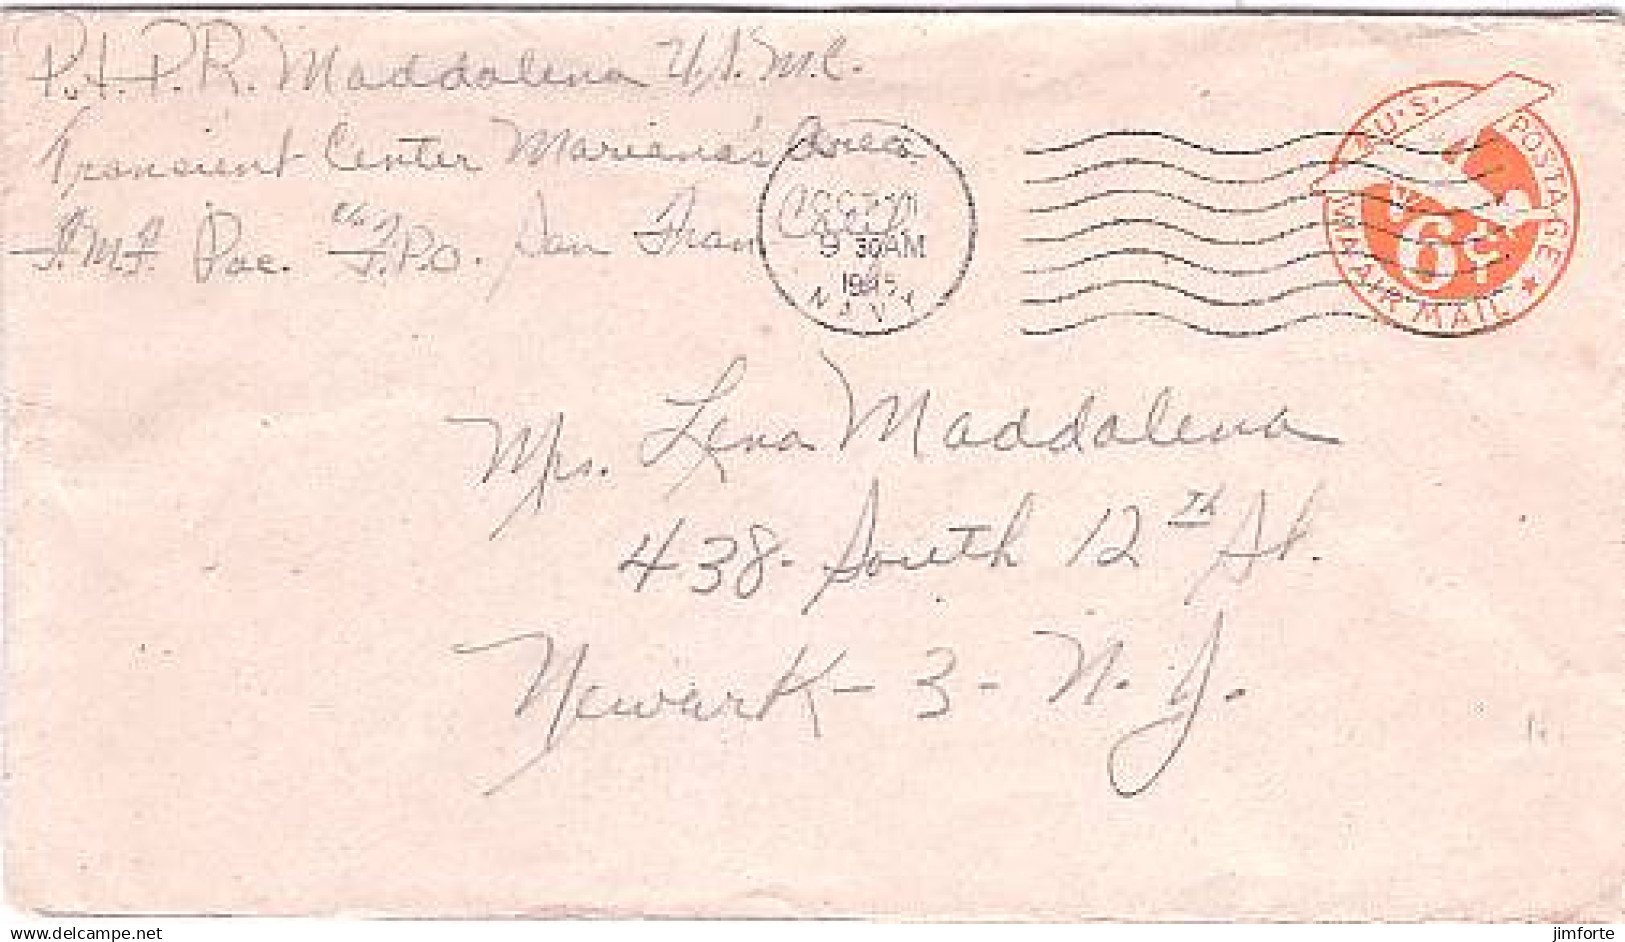 P.F.C. P.R. Maddalena U.S.M.C.
Transient Center Mariana's Area
F.M.F. Pac. c/o F.P.O. San Fran Calif
9 30AM
1945
NAVY
U.S. POSTAGE
6¢
VIA AIR MAIL
Mrs. Lena Maddalena
438 South 12th St.
Newark - 3 - N. J.
www.delcampe.net
jimforte